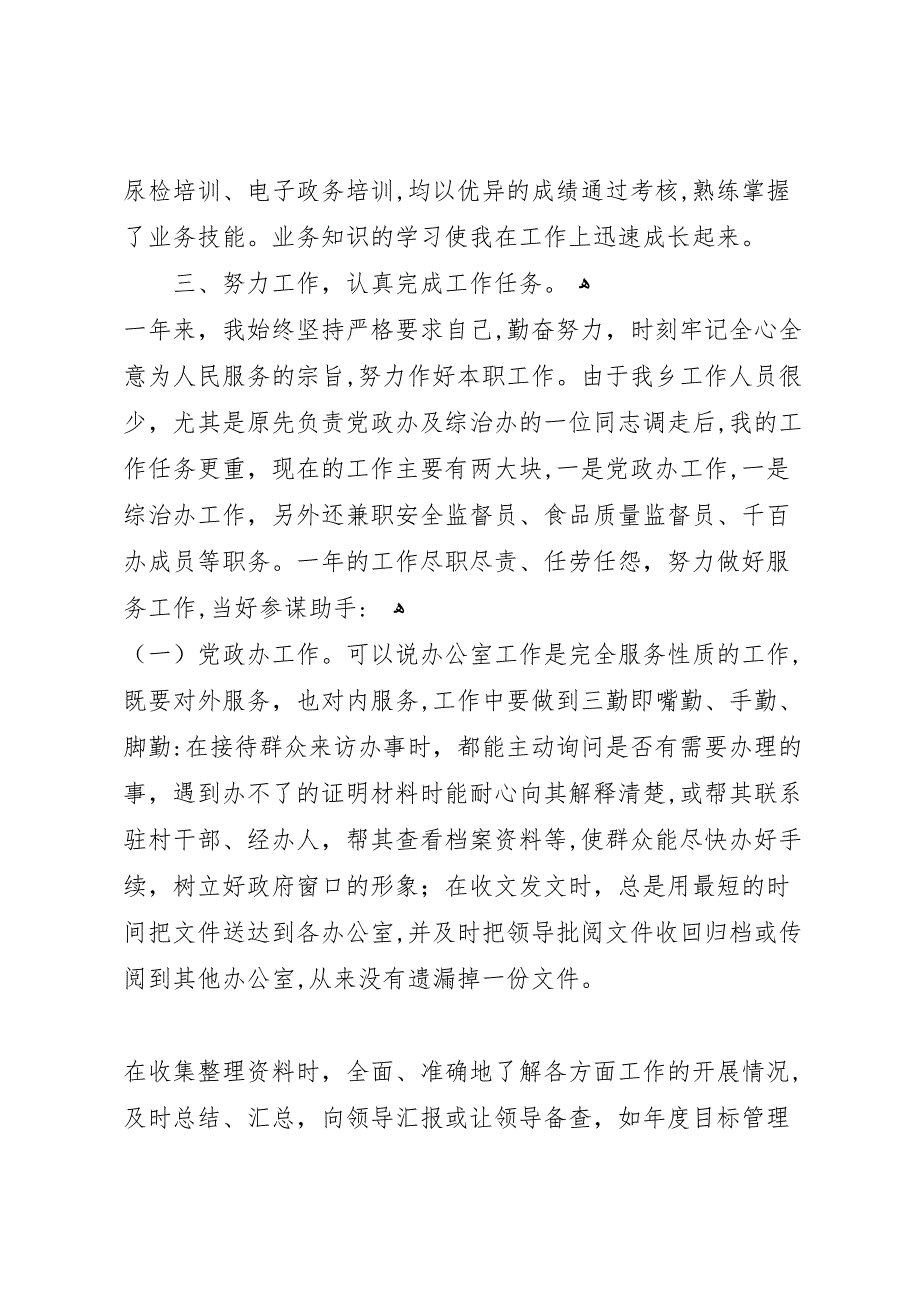 尿检培训、电子政务培训,均以优异的成绩通过考核,熟练掌握
了业务技能。业务知识的学习使我在工作上迅速成长起来。
三、努力工作，认真完成工作任务。ﻫ
一年来，我始终坚持严格要求自己,勤奋努力，时刻牢记全心全
意为人民服务的宗旨,努力作好本职工作。由于我乡工作人员很
少，尤其是原先负责党政办及综治办的一位同志调走后,我的工
作任务更重，现在的工作主要有两大块,一是党政办工作,一是
综治办工作，另外还兼职安全监督员、食品质量监督员、千百
办成员等职务。一年的工作尽职尽责、任劳任怨，努力做好服
务工作,当好参谋助手: ﻫ
（一）党政办工作。可以说办公室工作是完全服务性质的工作,
既要对外服务，也对内服务,工作中要做到三勤即嘴勤、手勤、
脚勤:在接待群众来访办事时，都能主动询问是否有需要办理的
事，遇到办不了的证明材料时能耐心向其解释清楚,或帮其联系
驻村干部、经办人，帮其查看档案资料等,使群众能尽快办好手
续，树立好政府窗口的形象；在收文发文时，总是用最短的时
间把文件送达到各办公室,并及时把领导批阅文件收回归档或传
阅到其他办公室,从来没有遗漏掉一份文件。
在收集整理资料时，全面、准确地了解各方面工作的开展情况,
及时总结、汇总，向领导汇报或让领导备查，如年度目标管理